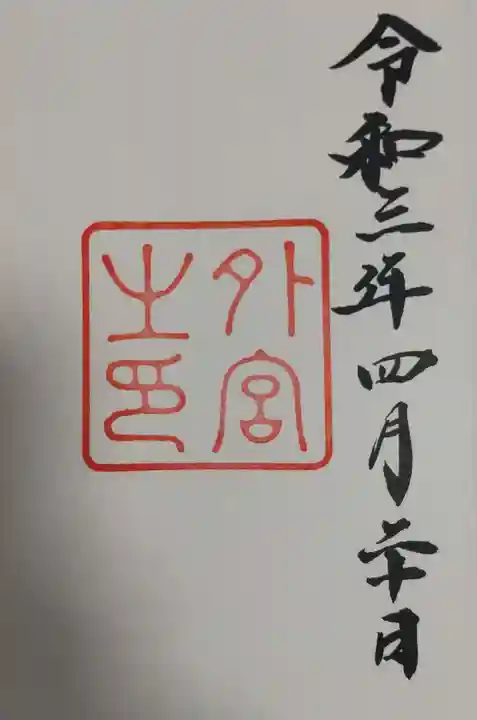 令和三年四月二十日
外宮
之印